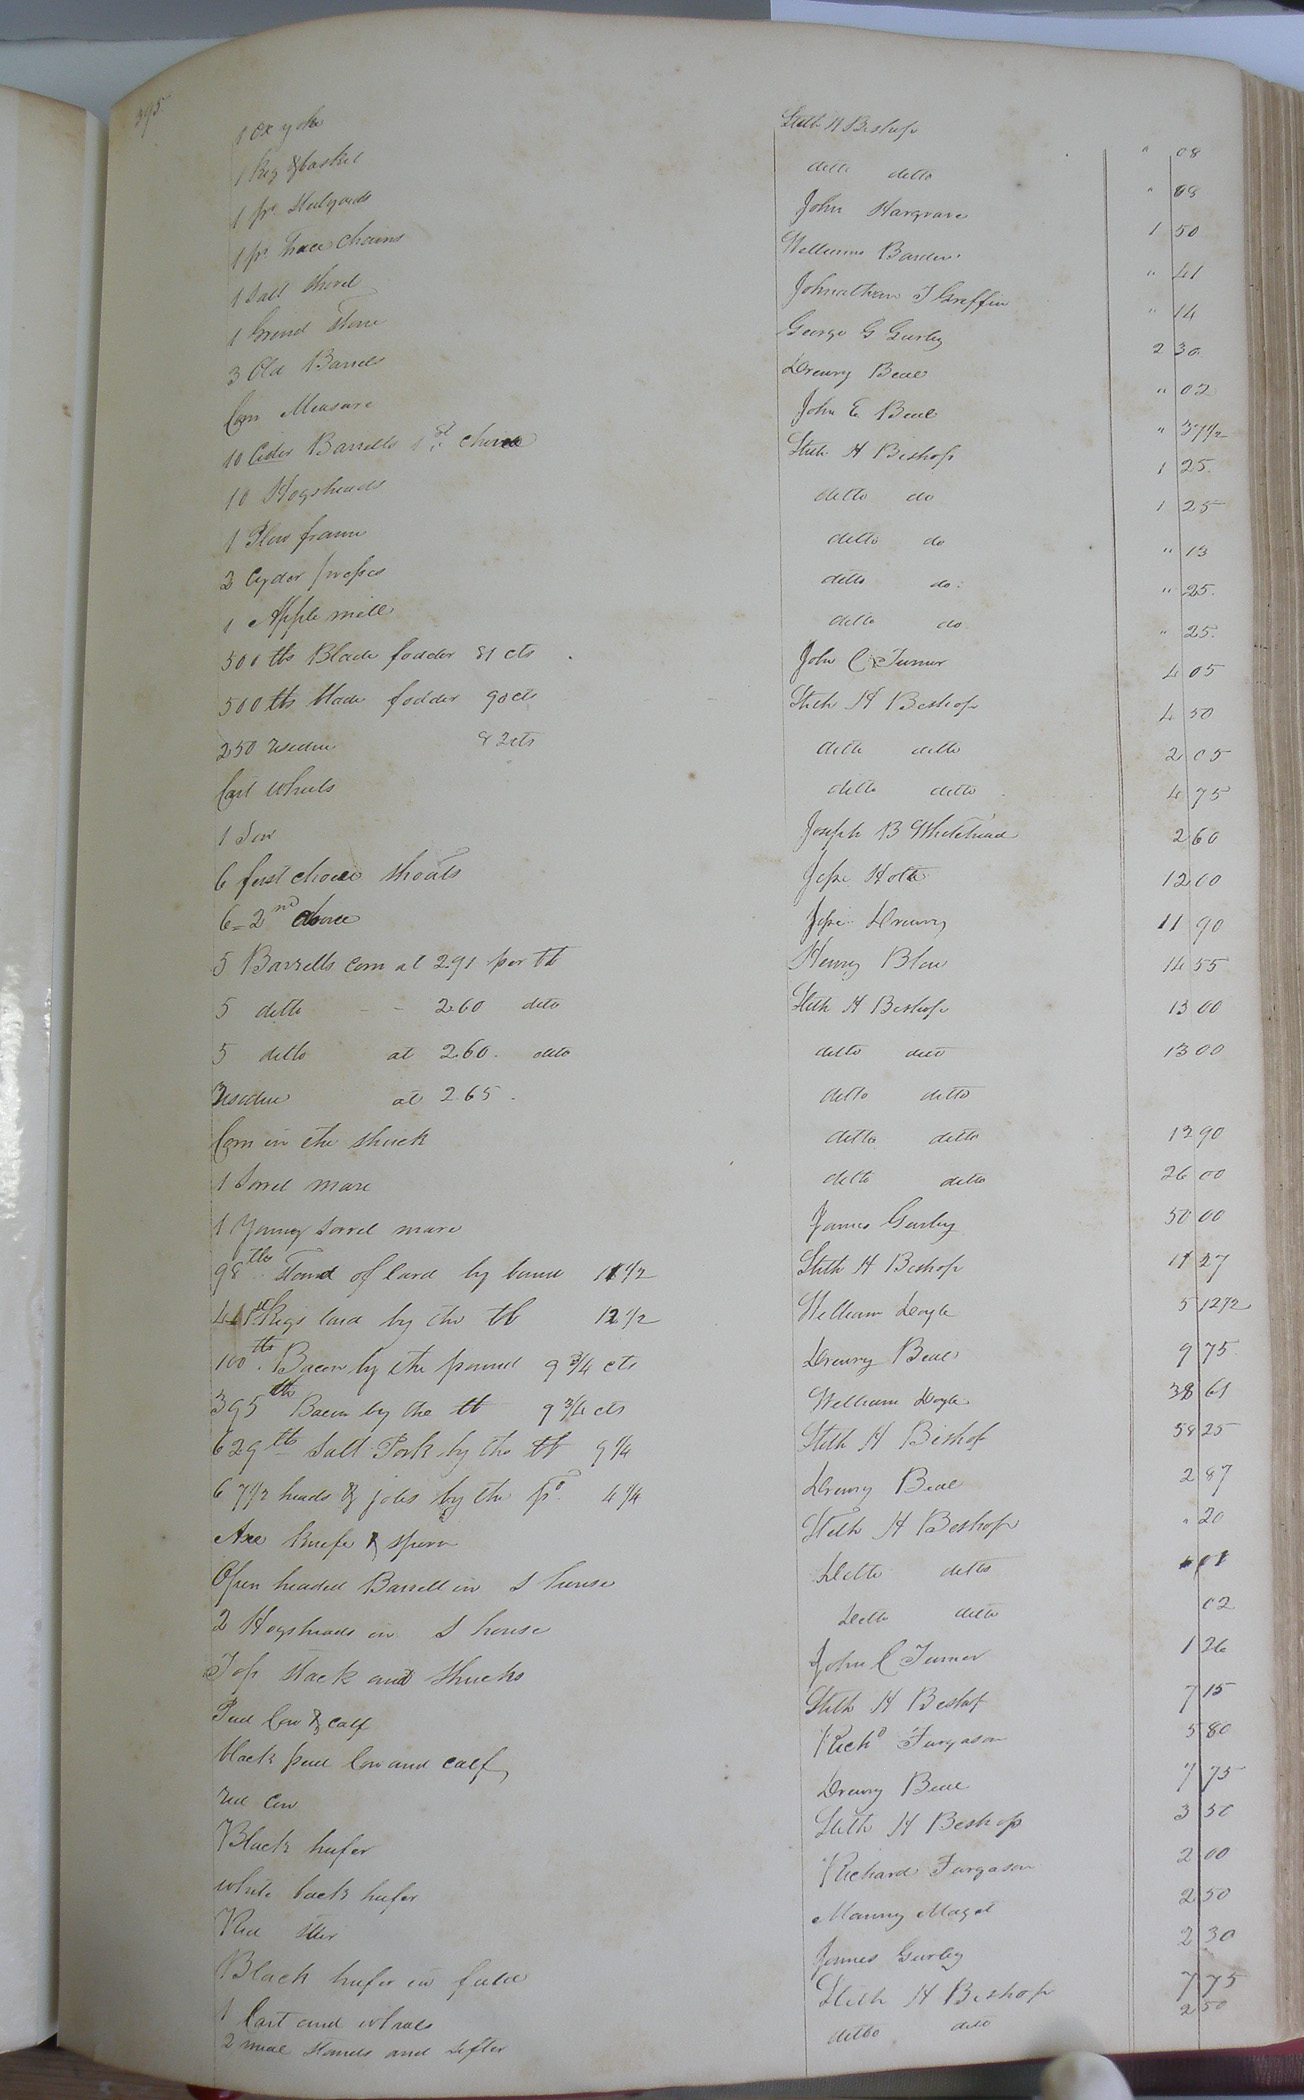 395
1 Ox yoke Stith H Bishop " 08
1 Keg & basket ditto ditto " 08
1 pr. Stilyards John Hargrave 1 50
1 pr trace chains Williams Barden " 41
1 Salt shovel Johnathan J Griffin " 14
1 Grind Stone George G Gurley 2 30
3 Old Barrels Drewry Beal " 02
Corn Measure John E Beal " 37 1/2
10 Cider Barrells 1st choice Stith H Bishop 1 25
10 Hogsheads ditto do 1 25
1 Plow frame ditto do " 13
2 Cyder presses ditto do " 25
1 Apple mill ditto do " 25
500 lbs Blade fodder 81 cts John C Turner 4 05
500 lbs blade fodder 90 cts Stith H Bishop 4 50
250 residue 82 cts ditto ditto 2 05
Cart wheels ditto ditto 4 75
1 Sow Joseph B Whitehead 2 60
6 first choice shoats Jesse Holt 12 00
6 = 2nd choice Jesse Drewry 11 90
5 Barrells corn at 2.91 per bl Henry Blow 14 55
5 ditto - - 2.60 ditto Stith H Bishop 13 00
5 ditto at 2.60. ditto ditto ditto 13 00
Residue at 2 65. ditto ditto
Corn in the shuck ditto ditto 12 90
1 Sorrel mare ditto ditto 26 00
1 Young sorrel mare James Gurley 50 00
98 lbs Stand of lard by pound 11 1/2 Stith H Bishop 11 27
41 lb Kegs lard by the lb 12 1/2 William Doyle 5 12 1/2
100 lbs. Bacon by the pound 9 3/4 cts Drewry Beal 9 75
395 lbs Bacon by the lb 9 3/4 cts William Doyle 38 61
629 lbs Salt Pork by the lb 9 1/4 Stith H Bishop 58 25
67 1/2 heads & joles by the po 4 1/4 Drewry Beal 2 87
Axe knife & spoon Stith H Bishop " 20
Open headed Barrell in S house Ditto ditto 01
2 Hogsheads in S house Ditto ditto 02
Top stack and Shucks John C Turner 1 26
Pied Cow & calf Stith H Bishop 7 15
black pied Cow and calf Richd Furgason 5 80
red Cow Drewry Beal 7 75
Black heifer Stith H Bishop 3 50
white back heifer Richard Furgason 2 00
Red Steer Manny Maget 2 50
Black heifer in field James Gurley 2 30
1 Cart and wheels Stith H Bishop 7 75
2 meal Stands and sifter ditto ditto 2 50